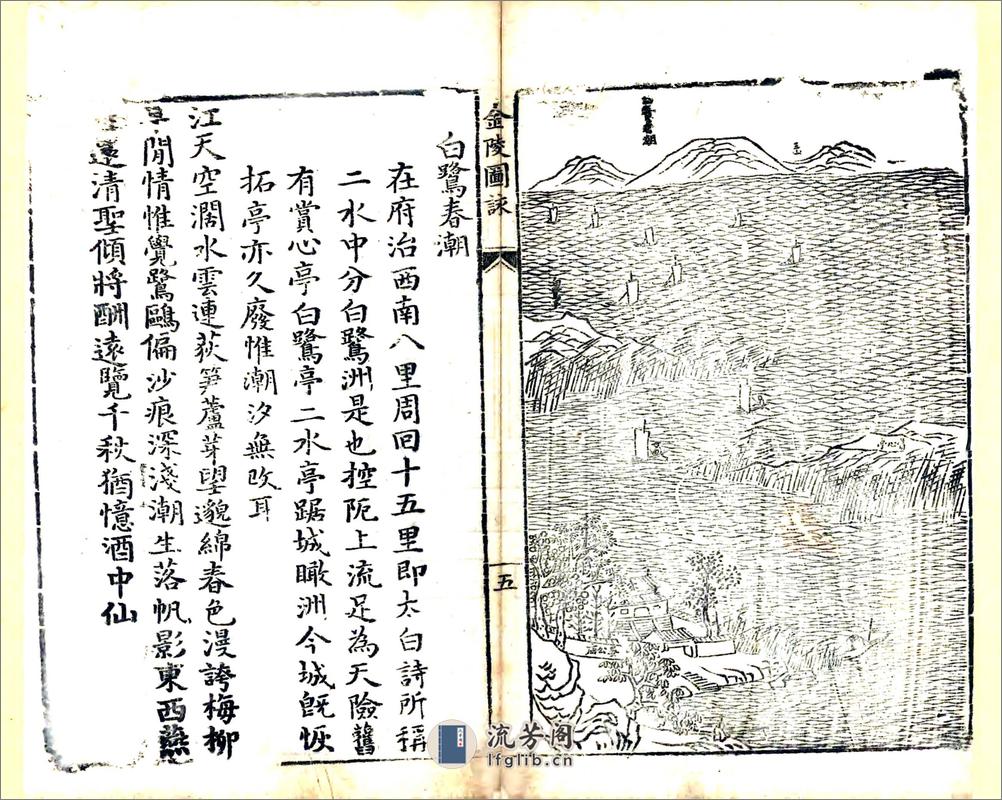 三山
金陵圖詠
五
白鷺春潮
在府治西南八里周回十五里即太白詩所稱
二水中分白鷺洲是也控阨上流足為天險舊
有賞心亭白鷺亭二水亭踞城瞰洲今城既恢
拓亭亦久廢惟潮汐無改耳
江天空濶水雲連荻笋蘆芽望邈綿春色漫誇梅柳
早閒情惟覺鷺鷗偏沙痕深淺潮生落帆影東西
遠清聖傾將酬遠覽千秋猶憶酒中仙
流芳阁
lfglib.cn